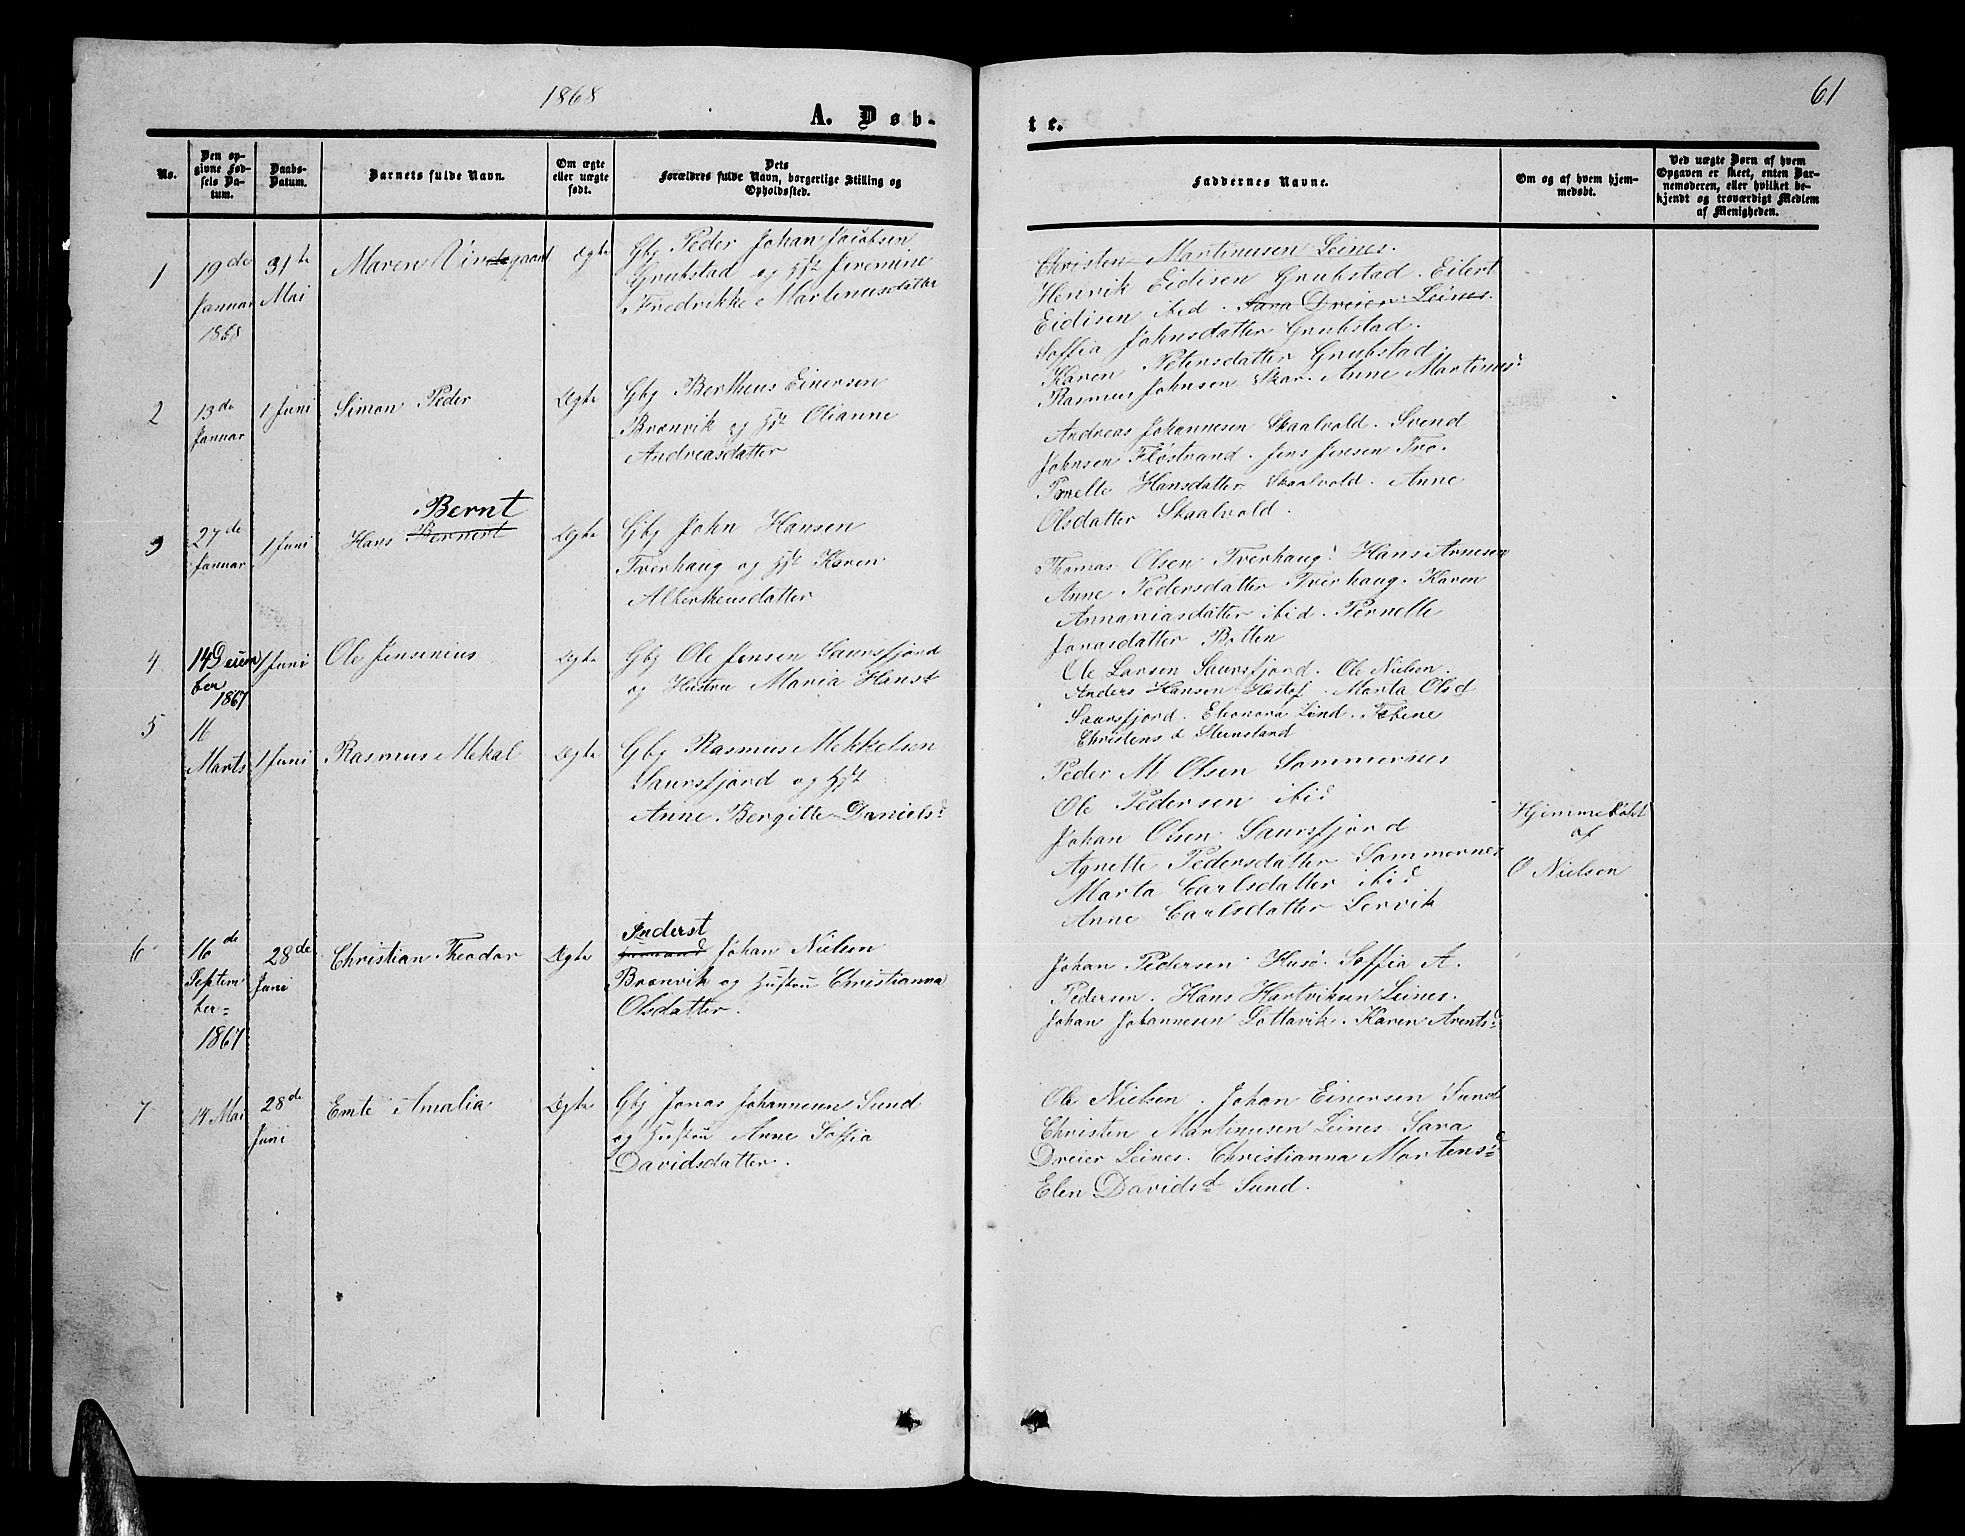 1868
61
A. Døb-
te.
No.
Den op-
givne Fød-
sels Da-
tum.
Daabs-
Datum.
Barnets fulde Navn.
Om ægte
eller uægte
født.
Dets
Forældres fulde Navn, borgerlige Stilling og
Opholdssted.
Faddernes Navne.
Om og af hvem hjem-
medøbt.
Ved uægte Børn af hvem
Opgaven er skeet, enten Bar-
nemoderen, eller hvilket be-
kjendt og troværdigt Medlem
af Menigheden.
1
19de
Januar
1868
31te
Mai
Maren
Ægte
Gbj Peder Johan Jacobsen
Grubstad og Hst Jeremine
Fredrikke Martinusdatter
Christen Martinusen Leines.
Henrik Eidisen Grubstad. Eilert
Eidisen ibid. Sara Dreier Leines.
Soffia Johnsdatter Grubstad.
Karen Petersdatter Grubstad.
2
13de
Januar
1 Juni
Simon Peder
Ægte
Gbj Bertheus Einersen
Brænvik og Hst Olianne
Andreasdatter
Rasmus Johnsen Skar. Anne Martinusd
Andreas Johannesen Skaalvold. Svend
Johnsen Fløstrand. Jens Jensen Tro.
Hansdatter Skaalvold. Anne
Olsdatter Skaalvold.
3
27de
Januar
1 Juni
Bernt
Hans Bernert
Ægte
Gbj John Hansen
Tverhaug og Hst Karen
Albertheusdatter
Thomas Olsen Tverhaug. Hans Arnesen
Anne Pedersdatter Tverhaug. Karen
Annaniasdatter ibid. Pernelle
Jonasdatter Botten
4
14 Decem
ber
1867
1 Juni
Ole Jensenius
Ægte
Gbj Ole Jensen Saursfjord
og Hustru Maria Hansd
Ole Larsen Saursfjord. Ole Nielsen.
Anders Hansen Hestof. Marta Olsd
Saursfjord. Eleonora Lund. Tobine
Christensd Stensland
5
16
Marts
1 Juni
Rasmus Mekal
Ægte
Gbj Rasmus Mekkelsen
Saursfjord og Hst
Anne Bergitte Danielsd
Peder M Olsen Sommernes
Ole Pedersen ibid
Johan Olsen Saursfjord
Agnette Pedersdatter Sommernes
Marta Carlsdatter ibid
Anne Carlsdatter Lervik
Hjemmedøbt
af
O Nielsen
6
16de
Septem
ber
1867
28de
Juni
Christian Theodor
Ægte
Inderst
Johan Nielsen
Brænvik og Hustru Christianna
Olsdatter.
Johan Pedersen Husø. Soffia A.
Pedersen. Hans Hartviksen Leines.
Johan Johannesen Lottavik. Karen Arentsd
7
14 Mai
28de
Juni
Emte Amalia
Ægte
Gbj Jonas Johannesen Sund
og Hustru Anne Soffia
Davidsdatter.
Ole Nielsen. Johan Einersen Sund
Christen Martinusen Leines. Sara
Dreier Leines. Christianna Martensd
Elen Davidsd Sund.